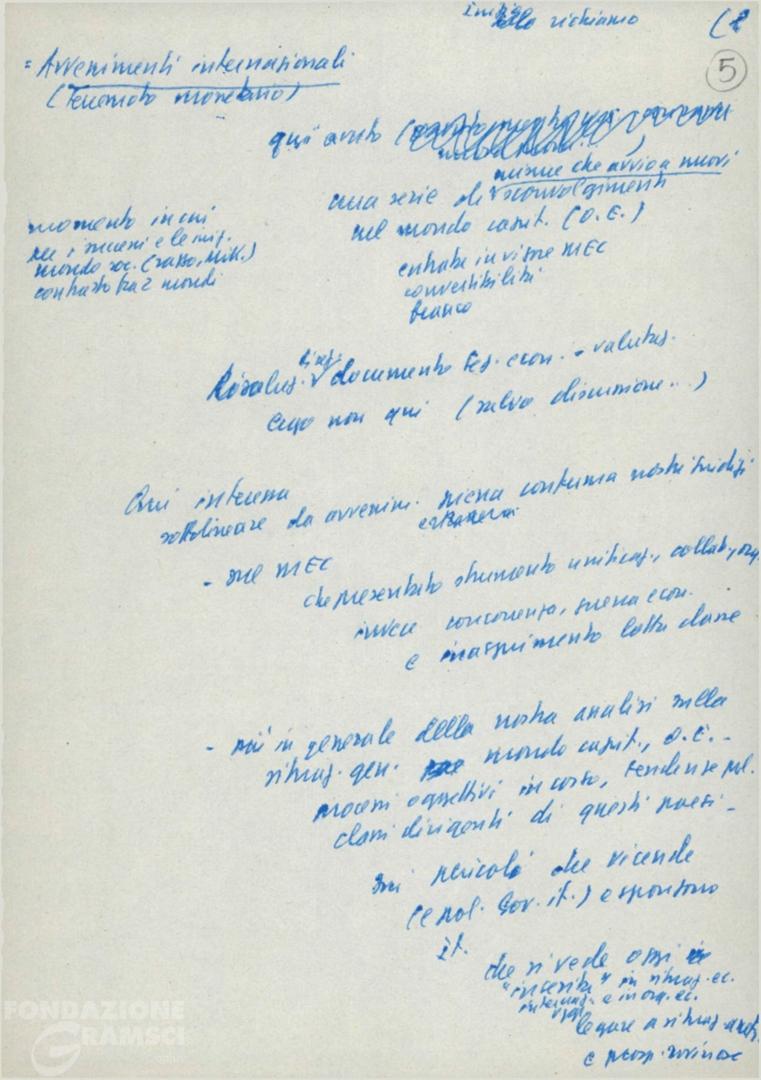 solo richiamo
(2
5
= Avvenimenti internazionali
(terremoto monetario)
qui avuto (
misure che avvio a nuovi
una serie di sconvolgimenti
nel mondo capit. (O.E.)
entrata in vigore MEC
convertibilità
franco
momento in cui
per i successi e le iniz.
mondo soc. (razzo, Mik.)
contrasto tra 2 mondi
documento seg. econ. - valutaz.
ergo non qui (salvo discussione...)
Qui interessa
sottolineare da avvenim. piena conferma nostri giudizi
- sul MEC
che presentato strumento unificaz., collab., org.
invece concorrenza, guerra econ.
e inasprimento lotta classe
- più in generale della nostra analisi sulla
situaz. gen. mondo capit., O.E. -
processi oggettivi in corso, tendenze pol.
classi dirigenti di questi paesi -
sui pericoli che vicende
(e pol. Gov. it.) espongono
It.
che si vede oggi
"inserita" in situaz. ec.
internaz. e in org. ec.
legare a situaz.
e prosp. rovinose
FONDAZIONE
GRAMSCI